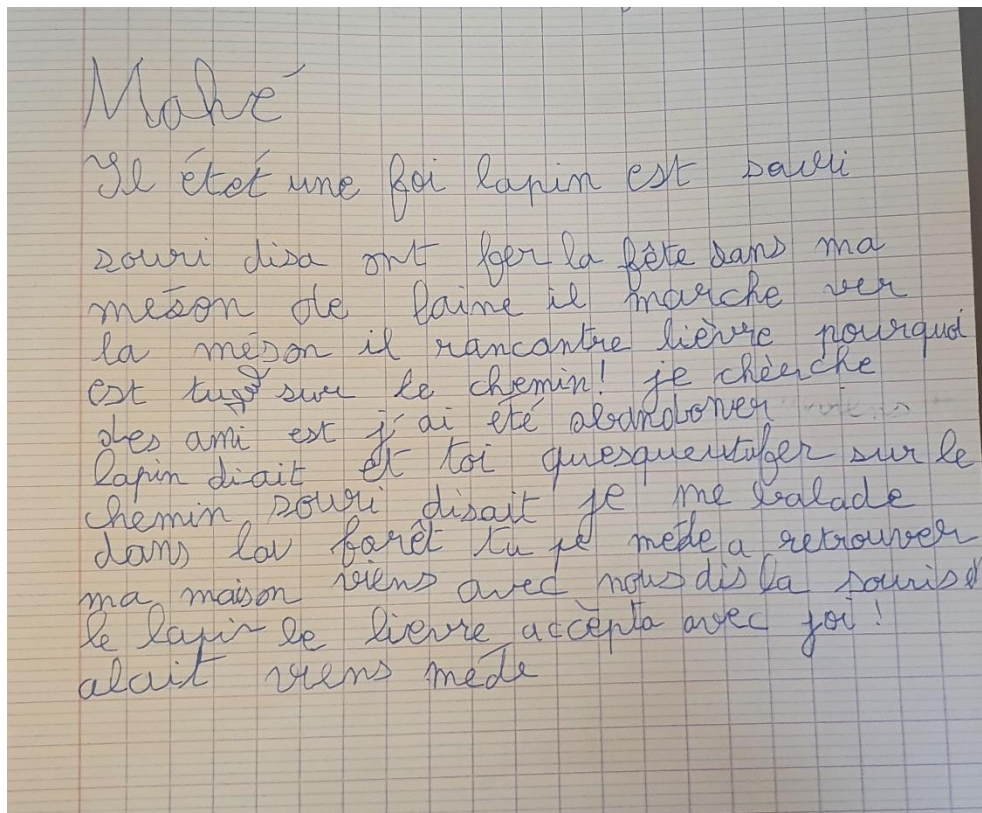 Mahé
Il étét une foi lapin est souri
souri disa ont fer la fête dans ma
méson de laine il marche ver
la méson il rancantre lièvre pourquoi
est tu sur le chemin! je chèrche
des ami est j'ai été abandoner
lapin diait et toi quesqueutufer sur le
chemin souri disait je me balade
dans la forêt tu mède a retrouver
ma maison viens avec nous dis la souris
le lapin le lievre accèpta avec joi!
alait viens mède